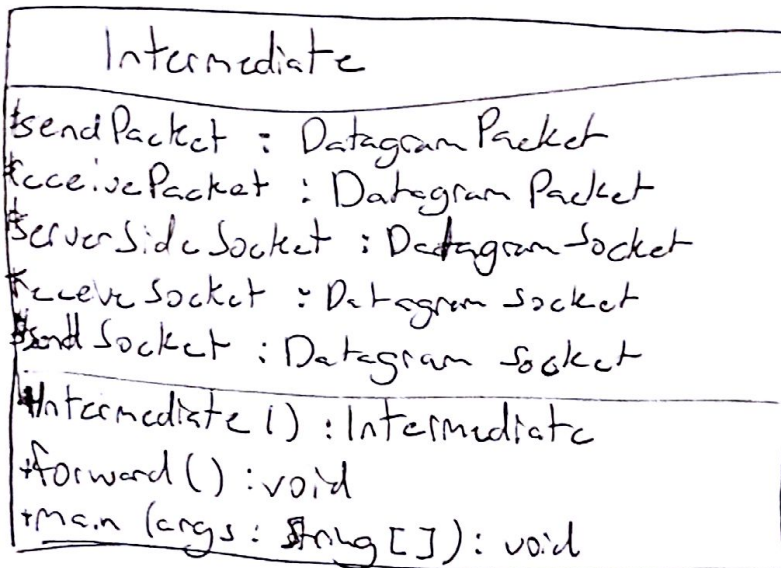 Intermediate
#sendPacket : DatagramPacket
#receivePacket : DatagramPacket
#serverSideSocket : DatagramSocket
#receiveSocket : DatagramSocket
#sendSocket : DatagramSocket
+Intermediate() : Intermediate
+forward() : void
+main (args : String[]) : void